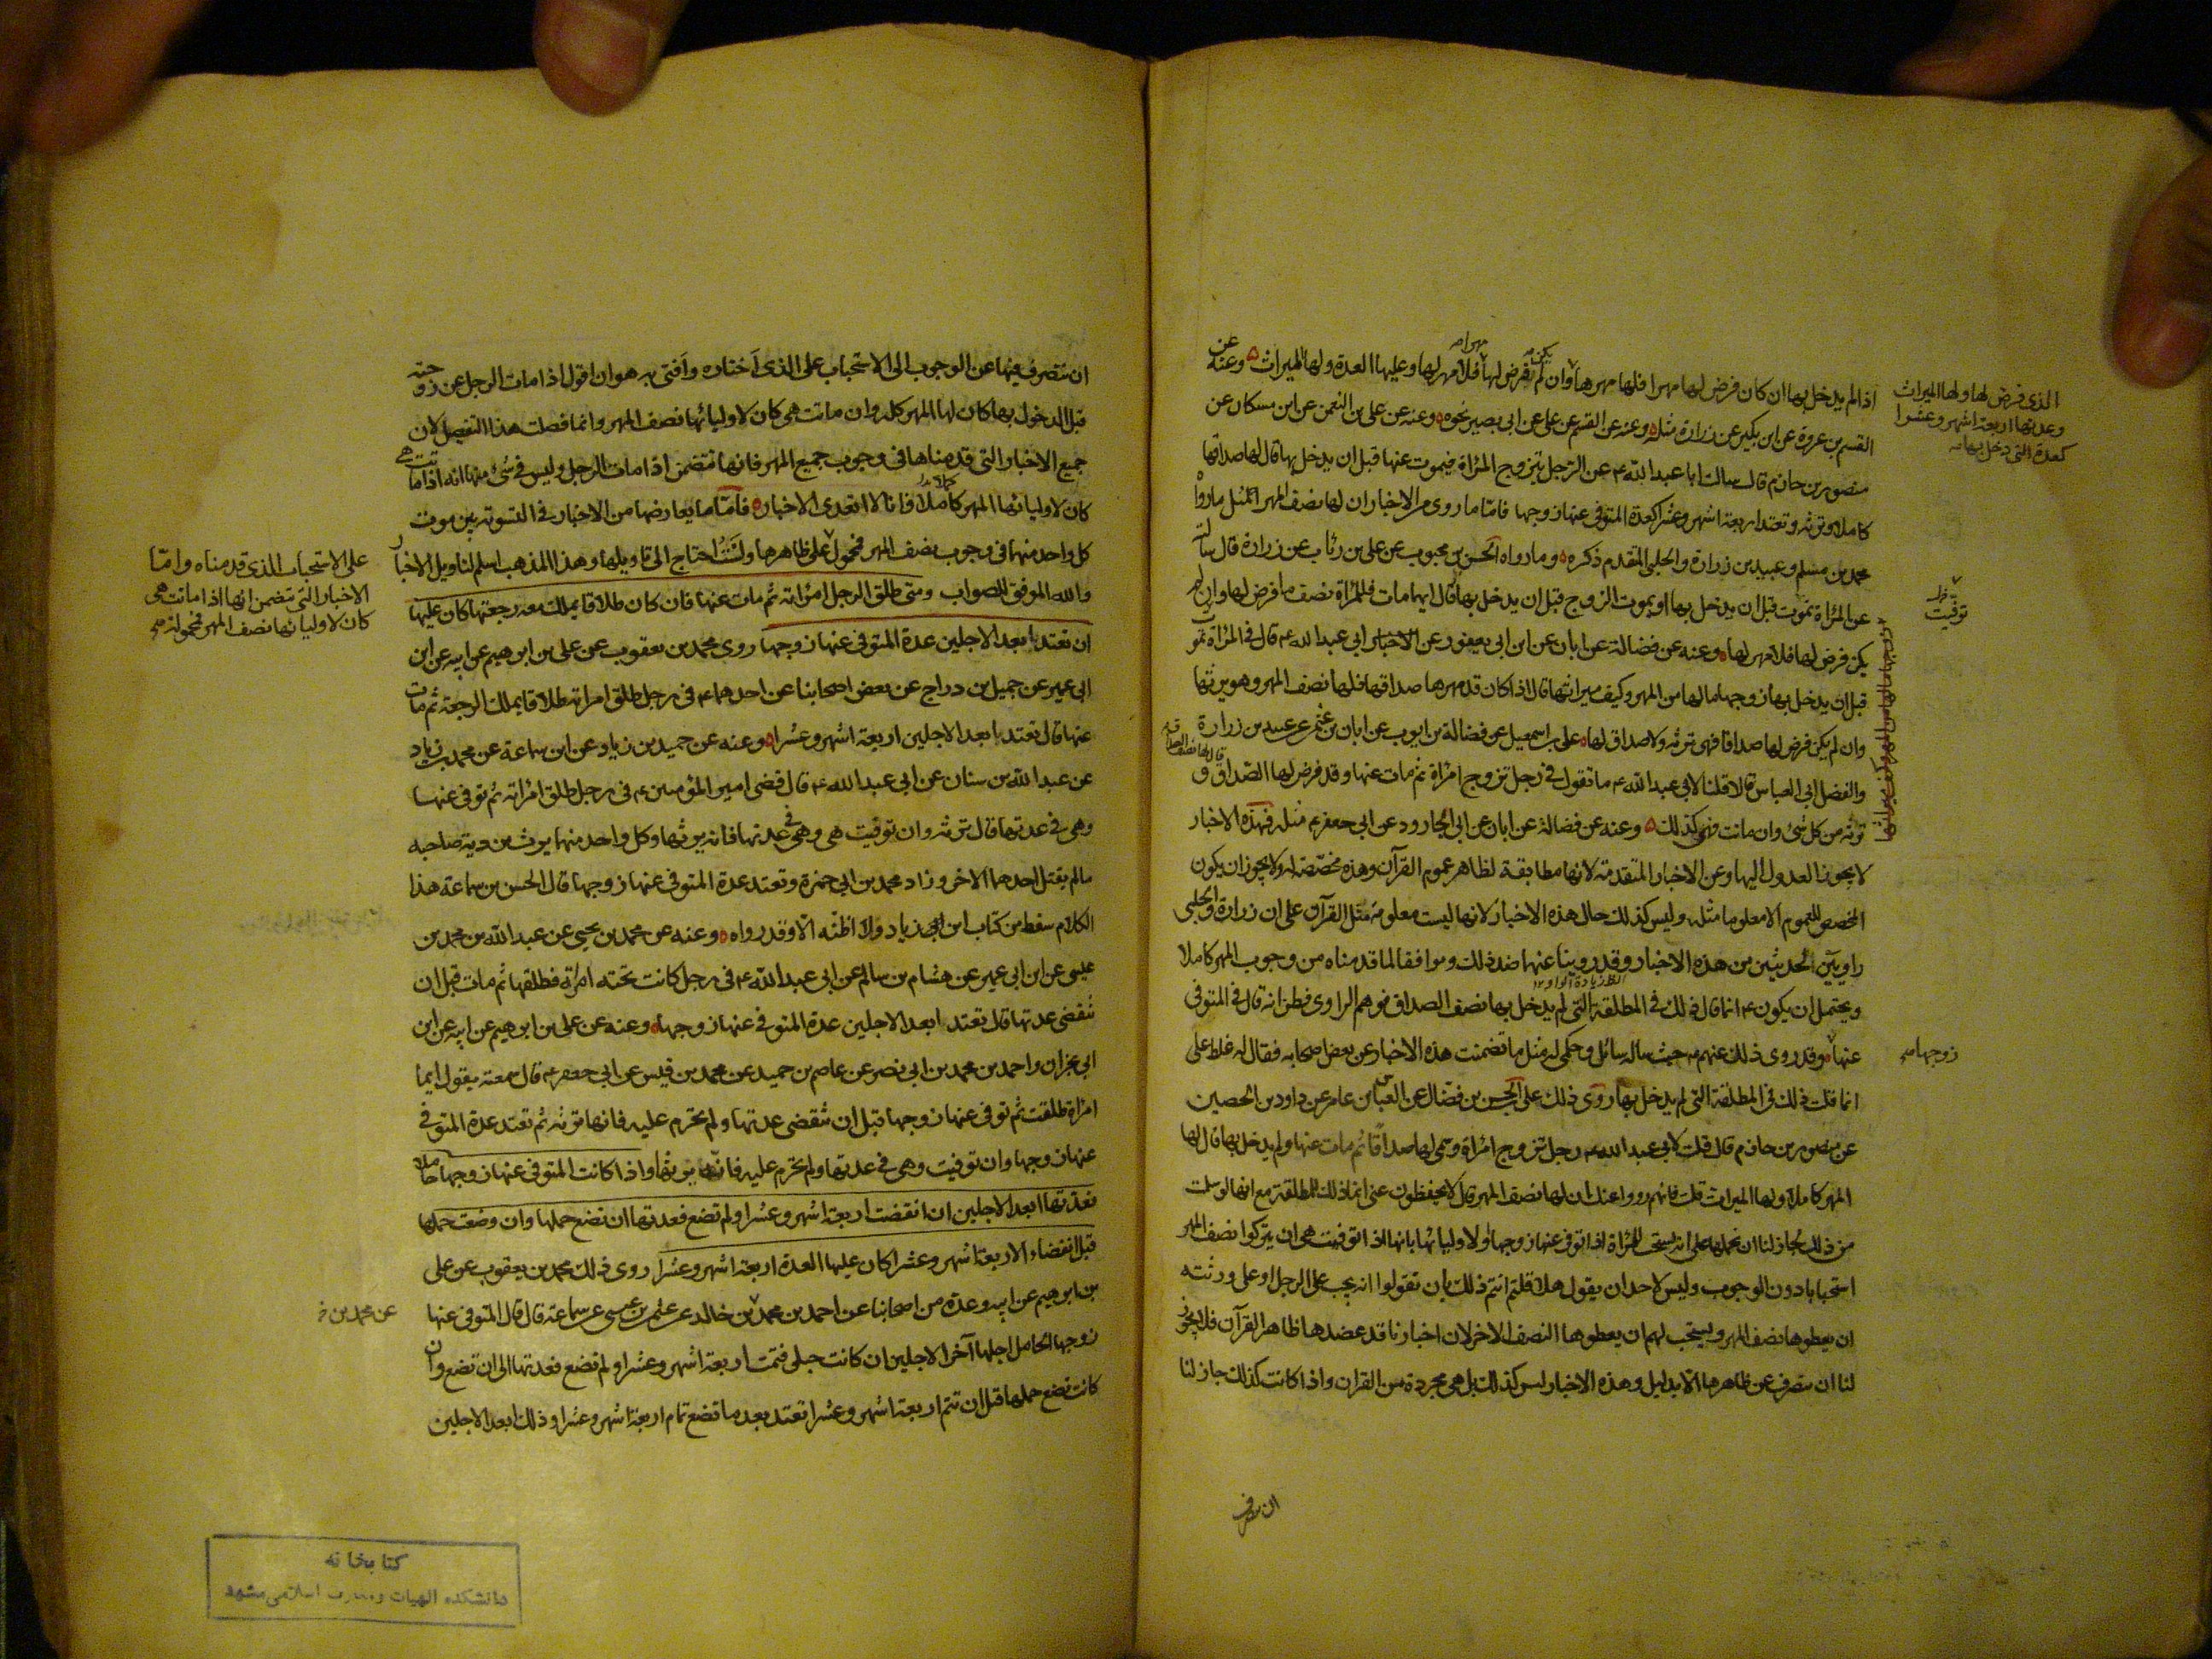 اذا لم يدخل بها ان كان فرض لها مهرا فلها مهرها وان لم يكن فرض لها فلا مهر لها وعليها العدة ولها الميراث وعنه عن
القسم بن عروة عن ابن بكير عن زرارة مثله وعنه عن القسم عن على عن ابى بصير نحوه وعنه عن على بن النعمن عن ابن مسكان عن
منصور بن حازم قال سالت ابا عبد الله ع عن الرجل يتزوج المراة فيموت عنها قبل ان يدخل بها قال لها صداقها
كاملا وترثه وتعتد اربعة اشهر وعشرا كعدة المتوفى عنها زوجها فاما ما روى من الاخبار ان لها نصف المهر مثل ما رواه
محمد بن مسلم وعبيد بن زرارة والحلبى المتقدم ذكره وما رواه الحسن بن محبوب عن على بن رئاب عن زرارة قال سالته
عن المراة تموت قبل ان يدخل بها او يموت الزوج قبل ان يدخل بها قال ايهما مات فللمراة نصف ما فرض لها وان لم
يكن فرض لها فلا مهر لها وعنه عن فضالة عن ابان عن ابن ابى يعفور عن ابى عبد الله ع قال فى المراة تموت
قبل ان يدخل بها زوجها مالها من المهر وكيف ميراثها قال اذا كان قد مهرها صداقها فلها نصف المهر وهو يرثها
وان لم يكن فرض لها صداقا فهى ترثه ولا صداق لها على بن اسمعيل عن فضالة بن ايوب عن ابان بن عثمن عن عبيد بن زرارة
والفضل ابى العباس قالا قلنا لابى عبد الله ع ما تقول فى رجل تزوج امراة ثم مات عنها وقد فرض لها الصداق
ترثه من كل شئ وان ماتت فهى كذلك وعنه عن فضالة عن ابان عن ابى الجارود عن ابى جعفر ع مثله فهذه الاخبار
لا يجوز العدول اليها وعن الاخبار المتقدمة لانها مطابقة لظاهر عموم القرآن وهذه مخصصة له ولا يجوز ان يكون
المخصص للعموم الا معلوما مثله وليس كذلك حال هذه الاخبار لانها ليست معلومة مثل القرآن على ان زرارة والحلبى
راويين الحديثين من هذه الاخبار وقد روينا عنهما ضد ذلك وموافقا لما قدمناه من وجوب المهر كاملا
ويحتمل ان يكون ع انما قال ذلك فى المطلقة والتى لم يدخل بها نصف الصداق فوهم الراوى فظن انه قال فى المتوفى
عنها وقد روى ذلك عنهم ع حيث ساله سائل وحكى له مثل ما تضمنت هذه الاخبار عن بعض اصحابه فقال له غلط على
انما قلت ذلك فى المطلقة التى لم يدخل بها روى ذلك على بن الحسن بن فضال عن العباس بن عامر عن داود بن الحصين
عن منصور بن حازم قال قلت لابى عبد الله ع رجل تزوج امراة وسمى لها صداقا ثم مات عنها ولم يدخل بها قال لها
المهر كاملا ولها الميراث قلت فانهم رووا عنك ان لها نصف المهر قال لا يحفظون عنى انما ذلك للمطلقة مع انها لو سلمت
من ذلك لجاز لنا ان نحملها على انه يستحب للمراة اذا توفى عنها زوجها ولاوليائها اذا توفيت هى ان يتركوا نصف المهر
استحبابا دون الوجوب وليس لاحد ان يقول هلا قلتم انتم ذلك بان تقولوا انه يجب على الرجل او على ورثته
ان يعطوها نصف المهر ويستحب لهم ان يعطوها النصف الاخر لان اخبارنا قد عضدها ظاهر القرآن فلا يجوز
لنا ان نتصرف عن ظاهرها الا بدليل وهذه الاخبار ليس كذلك بل هى مجردة من القران واذا كانت كذلك جاز لنا
ان نتصرف
الذى فرض لها ولها الميراث
وعدتها اربعة اشهر وعشرا
كعدة التى دخل بها
توفيت
زوجها
ان نتصرف فيها عن الوجوب الى الاستحباب على الذى اختاره وافتى به هو ان اقول اذا مات الرجل عن زوجته
قبل الدخول بها كان لها المهر كله وان ماتت هى كان لاوليائها نصف المهر وانما فصلت هذا التفصيل لان
جميع الاخبار التى قدمناها فى وجوب جميع المهر فانها تتضمن اذا مات الرجل وليس فى شئ منها انه اذا ماتت هى
كان لاوليائها المهر كاملا فانا لا اتعدى الاخبار فاما ما يعارضها من الاخبار فى التسوية بين موت
كل واحد منهما فى وجوب نصف المهر فمحمول على ظاهرها ولست احتاج الى تاويلها وهذا المذهب اسلم لتاويل الاخبار
والله الموفق للصواب ومتى طلق الرجل امراته ثم مات عنها فان كان طلاقا يملك معه رجعتها كان عليها
ان تعتد بابعد الاجلين عدة المتوفى عنها زوجها روى محمد بن يعقوب عن على بن ابرهيم عن ابيه عن ابن
ابى عمير عن جميل بن دراج عن بعض اصحابنا عن احدهما ع فى رجل طلق امراته طلاقا يملك الرجعة ثم مات
عنها قال تعتد بابعد الاجلين اربعة اشهر وعشرا وعنه عن حميد بن زياد عن ابن سماعة عن محمد بن زياد
عن عبد الله بن سنان عن ابى عبد الله ع قال قضى امير المؤمنين ع فى رجل طلق امراته ثم توفى عنها
وهى فى عدتها قال ترثه وان توفيت هى وهى فى عدتها فانه يرثها وكل واحد منهما يرث من دية صاحبه
مالم يقتل احدهما الاخر وزاد محمد بن ابى حمزة وتعتد عدة المتوفى عنها زوجها قال الحسن بن سماعة هذا
الكلام سقط من كتاب ابن زياد ولا اظنه الا وقد رواه وعنه عن محمد بن يحيى عن عبد الله بن محمد بن
عيسى عن ابن ابى عمير عن هشام بن سالم عن ابى عبد الله ع فى رجل كانت تحته امراة فطلقها ثم مات قبل ان
تنقضى عدتها قال تعتد ابعد الاجلين عدة المتوفى عنها زوجها وعنه عن على بن ابرهيم عن ابيه عن ابن
ابى نجران واحمد بن محمد بن ابى نصر عن عاصم بن حميد عن محمد بن قيس عن ابى جعفر ع قال سمعته يقول ايما
امراة طلقت ثم توفى عنها زوجها قبل ان تنقضى عدتها ولم تحرم عليه فانها ترثه ثم تعتد عدة المتوفى
عنها زوجها وان توفيت وهى فى عدتها ولم تحرم عليه فانه يرثها واذا كانت المتوفى عنها زوجها حاملا
فعدتها ابعد الاجلين ان انقضت اربعة اشهر وعشرا ولم تضع فعدتها ان تضع حملها وان وضعت حملها
قبل انقضاء الاربعة اشهر وعشرا كان عليها العدة اربعة اشهر وعشرا روى ذلك محمد بن يعقوب عن على
بن ابرهيم عن ابيه وعدة من اصحابنا عن احمد بن محمد بن خالد عن عثمن بن عيسى عن سماعة قال قال المتوفى عنها
زوجها الحامل اجلها آخر الاجلين ان كانت حبلى فتمت اربعة اشهر وعشرا ولم تضع فعدتها الى ان تضع وان
كانت تضع حملها قبل ان تتم اربعة اشهر وعشرا تعتد بعد ما تضع تمام اربعة اشهر وعشرا وذلك ابعد الاجلين
على الاستحباب الذى قدمناه واما
الاخبار التى تتضمن انها اذا ماتت هى
كان لاوليائها نصف المهر فمحمولة
عن محمد بن
كتابخانه
دانشكده الهيات ومعارف اسلامى مشهد